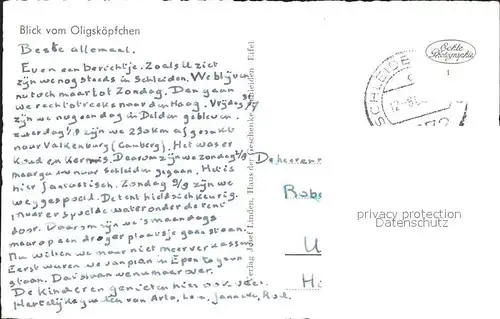 Blick vom Oligsköpfchen
Beste allemaal.
Even een berichtje. Zoals U ziet
zijn we nog steeds in Schleiden. We blijven
nu toch maar tot Zondag. Dan gaan
we rechtstreeks naar den Haag. Vrijdag
zijn we nog een dag in Delden gebleven.
zijn we 230 km afgezakt
naar Valkenburg (Limburg). Het was er
Koud en Kermis. Daarom zijn we zondag 2/8
maar gauw naar Schleiden gegaan. Het is
hier fantastisch. Zondag 9/8 zijn we
weggespoeld. De tent hield zich keurig.
Maar er spoelde water onder de tent
door. Daarom zijn we 's maandags
maar op een droger plaatsje gaan staan.
Nu willen we maar niet meer verkassen.
Eerst waren we van plan in Epen te gaan
staan. Dat slaan we nu maar over.
De Kinderen genieten hier ook
Hartelijke groeten van
Verlag Josef Linden, Haus der Geschenke, Schleiden / Eifel
Echte Photographie
1
SCHLEIDE
12-8
De heer en
Rob
H
privacy protection
Datenschutz